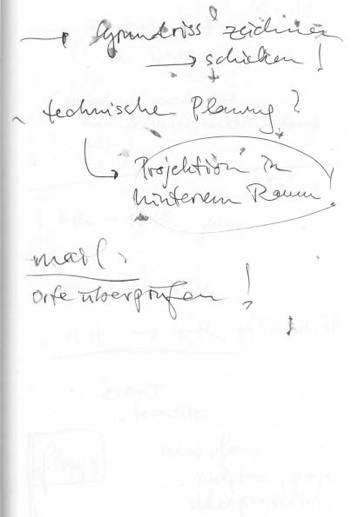 → Grundriss zeichnen
→ schicken!
technische Planung?
↳ Projektion in
hinterem Raum!
mail:
orte überprüfen!